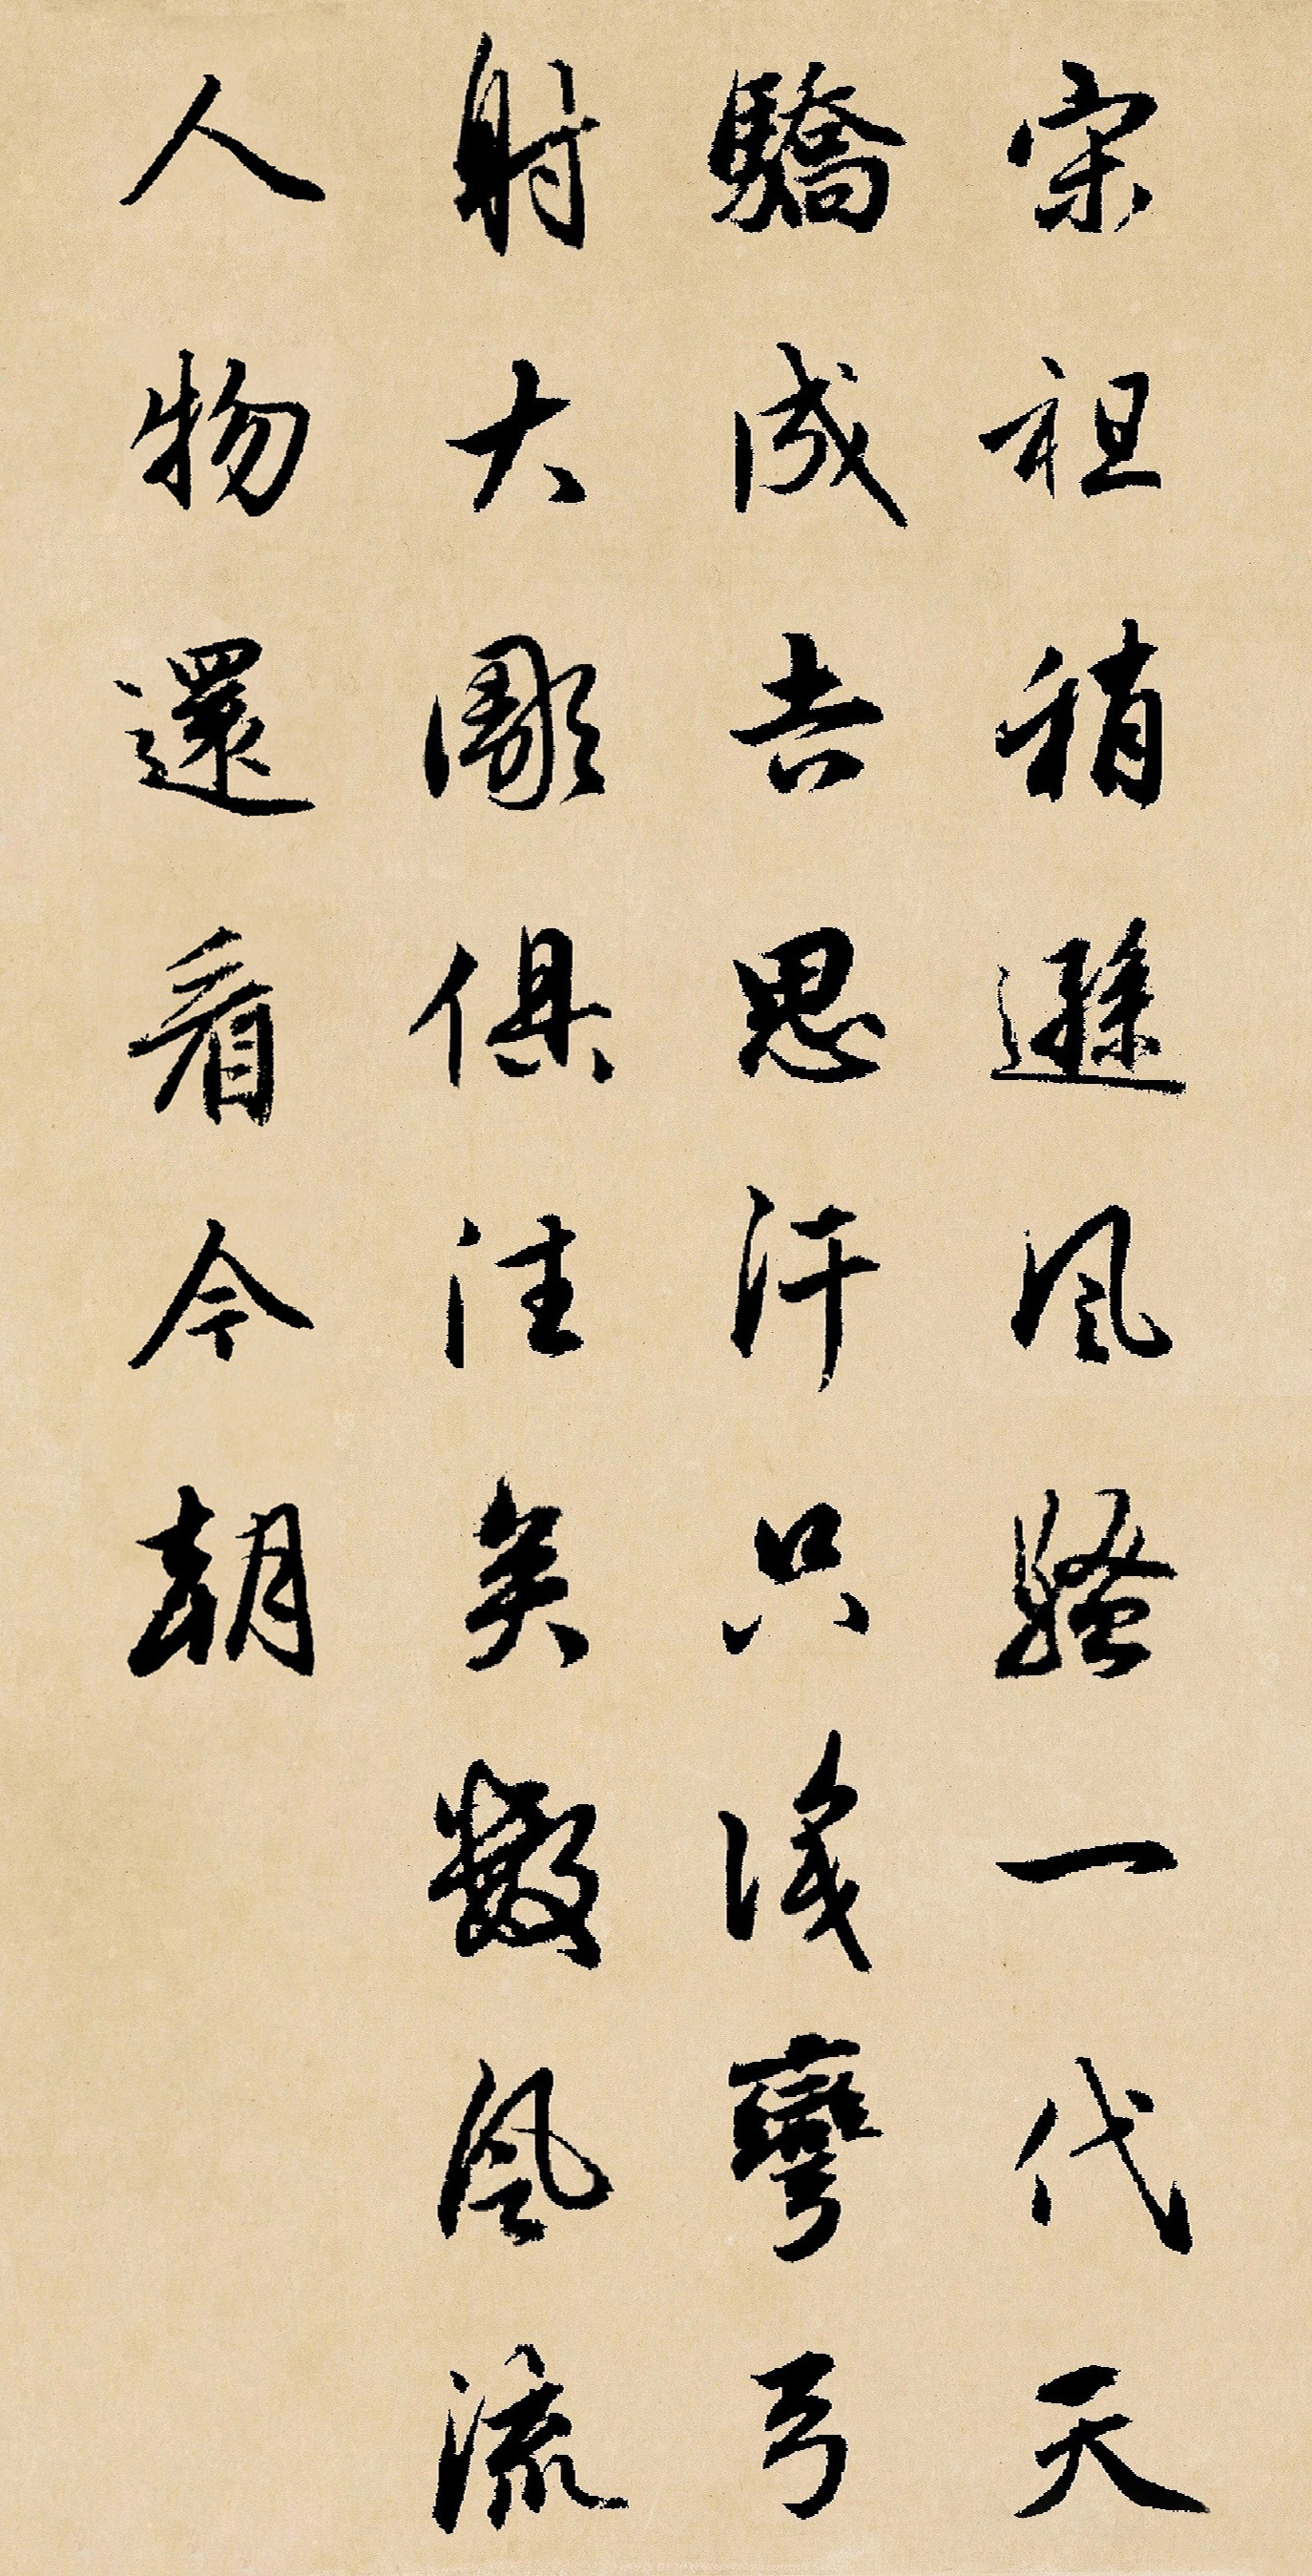 宋祖稍遜風騷一代天
驕成吉思汗只識彎弓
射大雕俱往矣數風流
人物還看今朝